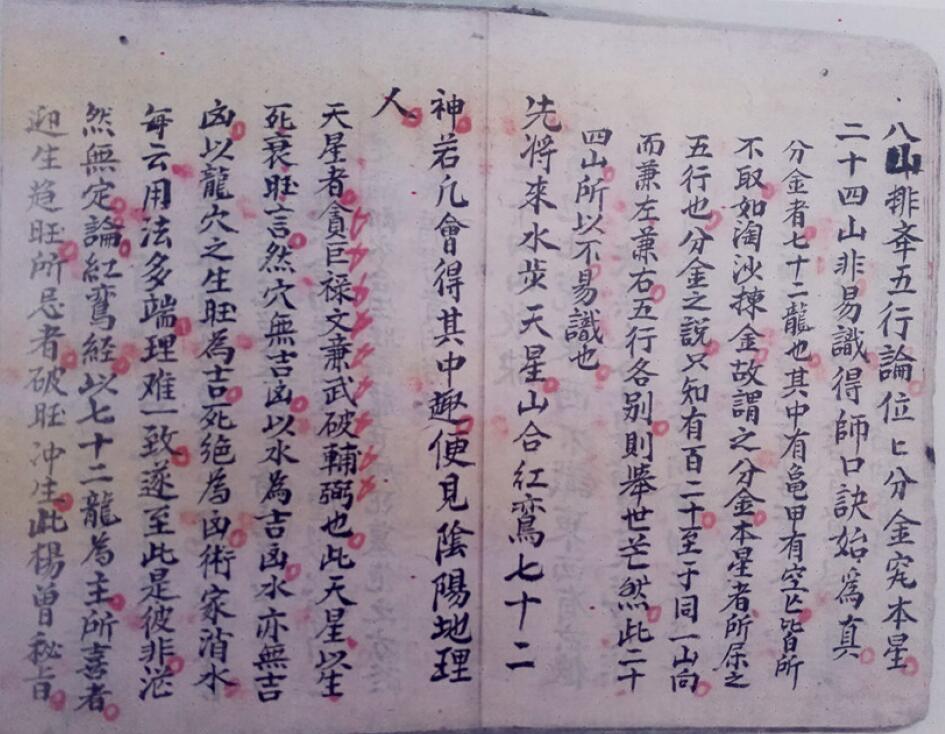 八山排來五行論位上分金究本星
二十四山非易識得師口訣始為真
分金者七十二龍也其中有龜甲有空亡皆所
不取如淘沙揀金故謂之分金本星者所屬之
五行也分金之說只知有百二十至于同一山向
而兼左兼右五行各別則舉世芒然此二十
四山所以不易識也
先將來水步天星山合紅鸞七十二
神若凡會得其中趣便見陰陽地理
人
天星者貪巨禄文亷武破輔弼也此天星以生
死衰旺言然穴無吉凶以水為吉凶水亦無吉
凶以龍穴之生旺為吉死絕為凶術家消水
每云用法多端理难一致遂至此是彼非茫
然無定論紅鸞經以七十二龍為主所喜者
迎生趋旺所忌者破旺冲生此楊曾秘旨